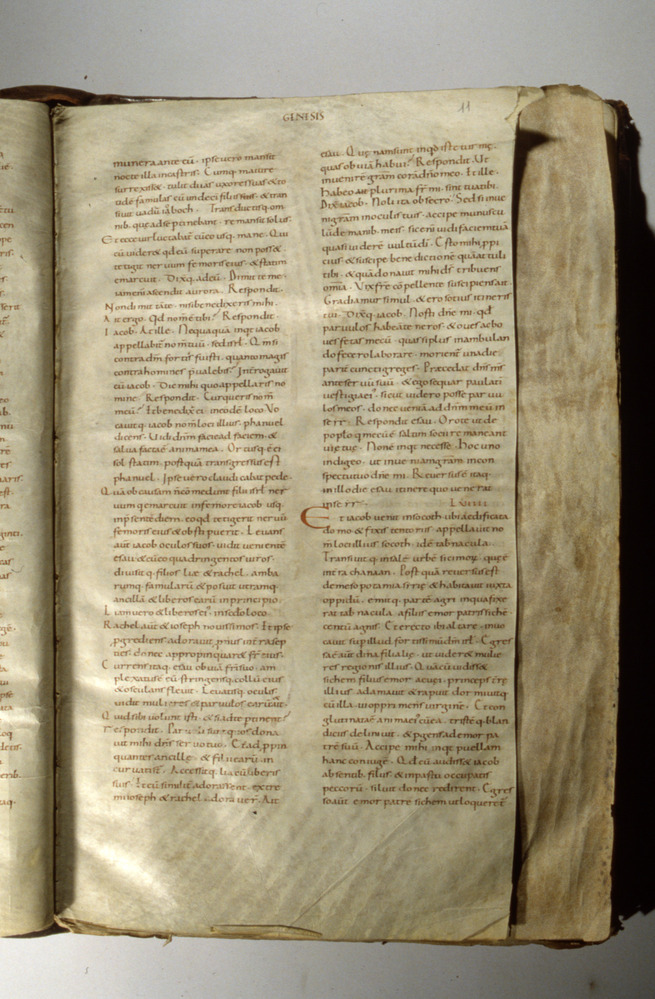 GENESIS
11
munera ante eū · ipse vero mansit
nocte illa incastris · Cumq· mature
surrexiss& · tulit duas uxores suas & to
tidē famulas cū undeci filiis suis · & tran
siuit vadū iaboch · Transductisq· om
nib; que adse ptinebant · remansit solus ·
Et ecce vir luctabat cū eo usq· mane · Qui
cū vider& qd eū superare non poss&
tetigit nervum femoris eius · & statim
emarcuit · Dixq· ad eū · Dimitte me ·
iam eni ascendit aurora · Respondit ·
Non dimittā te · nisi benedixeris mihi ·
Ait ergo · Qd nomē tibi? Respondit ·
Iacob · At ille · Nequaquā inqt iacob
appellabit nom tuū · sed isrl · Qm si
contra dm fortis fuisti · quanto magis
contra homines pvalebis? Interrogavit
eū iacob · Dic mihi quo appellaris no
mine · Respondit · Cur queris nom
meū? Et benedix ei in eodē loco · Vo
cavitq· iacob nom loci illius · phanuel
dicens · Vidi dnm facie ad faciem · &
salva facta ē anima mea · Ortusq· ē ei
sol statim · postquā transgressus est
phanuel · Ipse vero claudicabat pede ·
Quā ob causam n̄ comedunt filii isrl ner
vum qui emarcuit in femore iacob usq·
in psentē diem · eo qd tetigerit nervū
femoris eius & obstipuerit · Levans
aut iacob oculos suos · vidit venientē
esau & cū eo quadringentos viros ·
divisitq· filios liae & rachel · amba
rumq· famularū & posuit utramq·
ancillā & liberos earū in principio ·
Liam vero & liberos ei' in sedo loco ·
Rachel aut & ioseph novissimos · Et ipse
pgrediens adoravit pnus in trā sep
ties · donec appropinquar& fr̄ eius ·
Currens itaq· esau obviā fri suo · am
plexatus ē eū · stringensq· collū eius
& osculans flevit · Levatisq· oculis
vidit mulieres & parvulos earū & ait ·
Quid sibi volunt isti · & si ad te ptinent?
respondit · Parvuli sunt quos dona
vit mihi ds̄ servo tuo · Et adppin
quantes ancille · & filii earū in
curvati sē · Accessitq· lia cū liberis
suis · Et cū similit adorassent · extre
mi ioseph & rachel adoraver · Ait
esau · Que nam sunt inqd iste turme ·
quas obviā habui? Respondit · Ut
invenirē grām corā dno meo · Et ille ·
Habeo ait plurima fr̄ mi · sint tua tibi ·
Dix iacob · Noli ita obsecro · Sed si inve
ni gram in oculis tuis · accipe munuscu
lū de manib; meis · sic eni vidi facie tuā
quasi viderē vultū di · Esto mihi ppi
cius & suscipe benedictionē quā attuli
tibi · & quā donavit mihi ds̄ tribuens
omia · Vix fr̄e cōpellente suscipiens ait ·
Gradiamur simul · & ero socius itineris
tui · Dixq· iacob · Nosti dne mi · qd
parvulos habeā teneros · & oves ac bo
ves fetas mecū · quas si plus in ambulan
do fecero laborare · morient una die
parit cuncti greges · Precedat dns ms
ante servū suū · & ego sequar paulati
vestigia ei' · sicut videro posse parvu
los meos · donec venia ad dnm meū in
seir · Respondit esau · Oro te ut de
poplo qui mecū ē saltim socii remaneant
vie tue · Non ē inqt necesse · Hoc uno
indigeo · ut inveniam gram in con
spectu tuo dne mi · Reversus ē itaq·
in illo die esau itinere quo venerat
in seir ·
Et iacob venit in socoth · ubi aedificata
domo & fixis tentoriis · appellavit no
m loci illius socoth · idē tabnacula ·
Transivitq· in salē urbē sicimoȝ · que ē
in tra chanaan · Postquā reversus est
de mesopotamia syrię · & habitavit iuxta
oppidū · emitq· partē agri in qua fixe
rat tabnacula · a filiis emor patris sichē
centū agnis · Et erecto ibi altare · invo
cavit sup illud fortissimū dm isrl · Egres
sa ē aut dina filia lie · ut vider& mulie
res regionis illius · Quā cū vidiss&
sichem filius emor aevei · princeps tre
illius · adamavit & rapuit · dormivitq·
cū illa · vi opprimens virginē · Et con
glutinata ē anima ei' cū ea · tristēq· blan
diciis delinivit · & pgens ad emor pa
trē suū · Accipe mihi inqt puellam
hanc coniugē · Qd cū audiss& iacob
absentib; filiis · & in pastu occupatis
peccorū · siluit donec redirent · Egres
so aūt emor patrē sichem ut loqueret